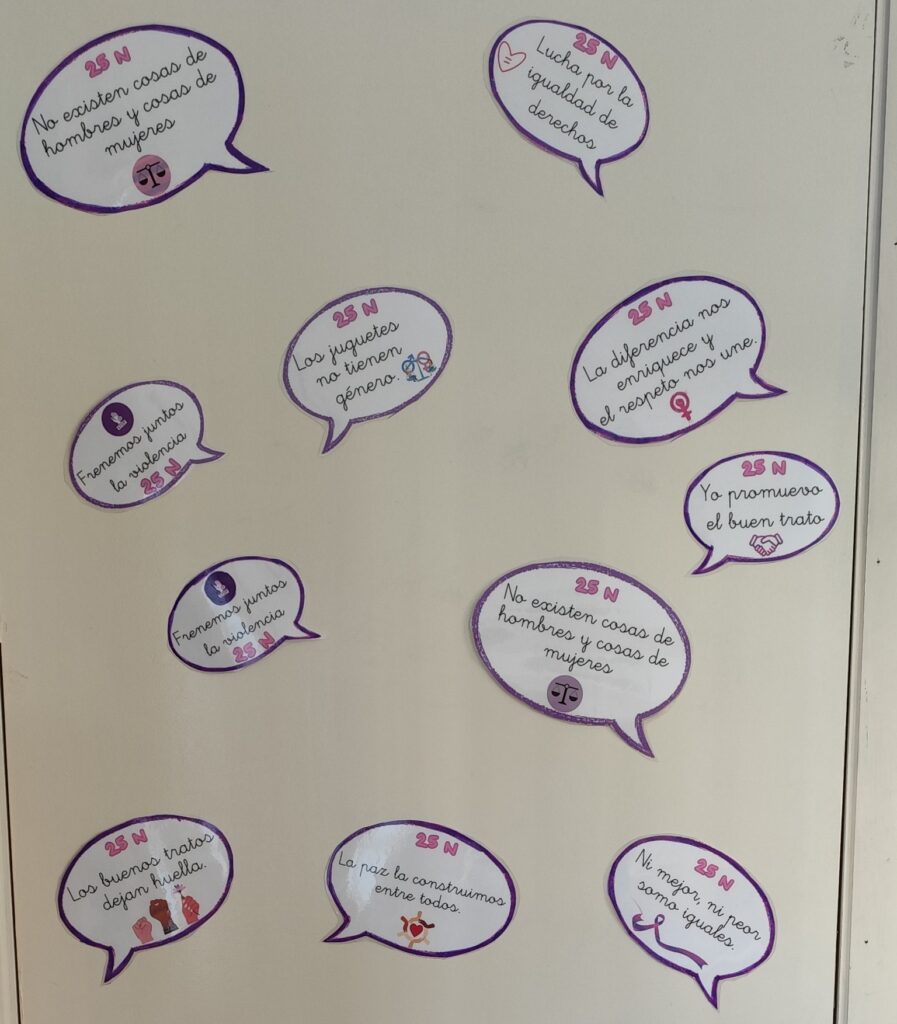 25 N
No existen cosas de
hombres y cosas de
mujeres
25 N
Lucha por la
igualdad de
derechos
25 N
Los juguetes
no tienen
género.
25 N
La diferencia nos
enriquece y
el respeto nos une.
Frenemos juntos
la violencia
25 N
25 N
Yo promuevo
el buen trato
Frenemos juntos
la violencia
25 N
25 N
No existen cosas de
hombres y cosas de
mujeres
25 N
Los buenos tratos
dejan huella.
25 N
La paz la construimos
entre todos.
25 N
Ni mejor, ni peor
somo iguales.